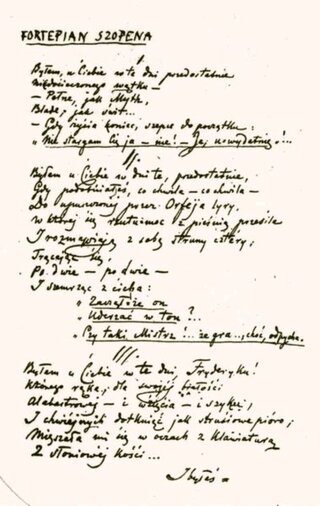 FORTEPIAN SZOPENA
I.
Byłem u Ciebie w te dni przedostatnie
Niedocieczonego wątku –
– Pełne, jak Myth,
Blade, jak świt...
– Gdy życia koniec szepce do początku:
"Nie stargam Cię ja – nie! – Ja, uwydatnię!...
II.
Byłem u Ciebie w dni te, przedostatnie,
Gdy podobniałeś, co chwila – co chwila –
Do upuszczonej przez Orfeja lyry,
W której się rzutu-moc z pieśnią przesila
I rozmawiają z sobą struny cztéry,
Trącając się,
Po dwie – po dwie –
I szemrząc z cicha:
"Zacząłże on
"Uderzać w ton?...
"Czy taki Mistrz!... że gra... choć odpycha.
III.
Byłem u Ciebie w te dni, Fryderyku!
Którego ręka, dla swojej białości
Alabastrowej – i wzięcia – i szyku,
I chwiejnych dotknięć jak strusiowe pióro;
Mięszała mi się w oczach z klawiaturą
Z słoniowej kości...
I byłeś =